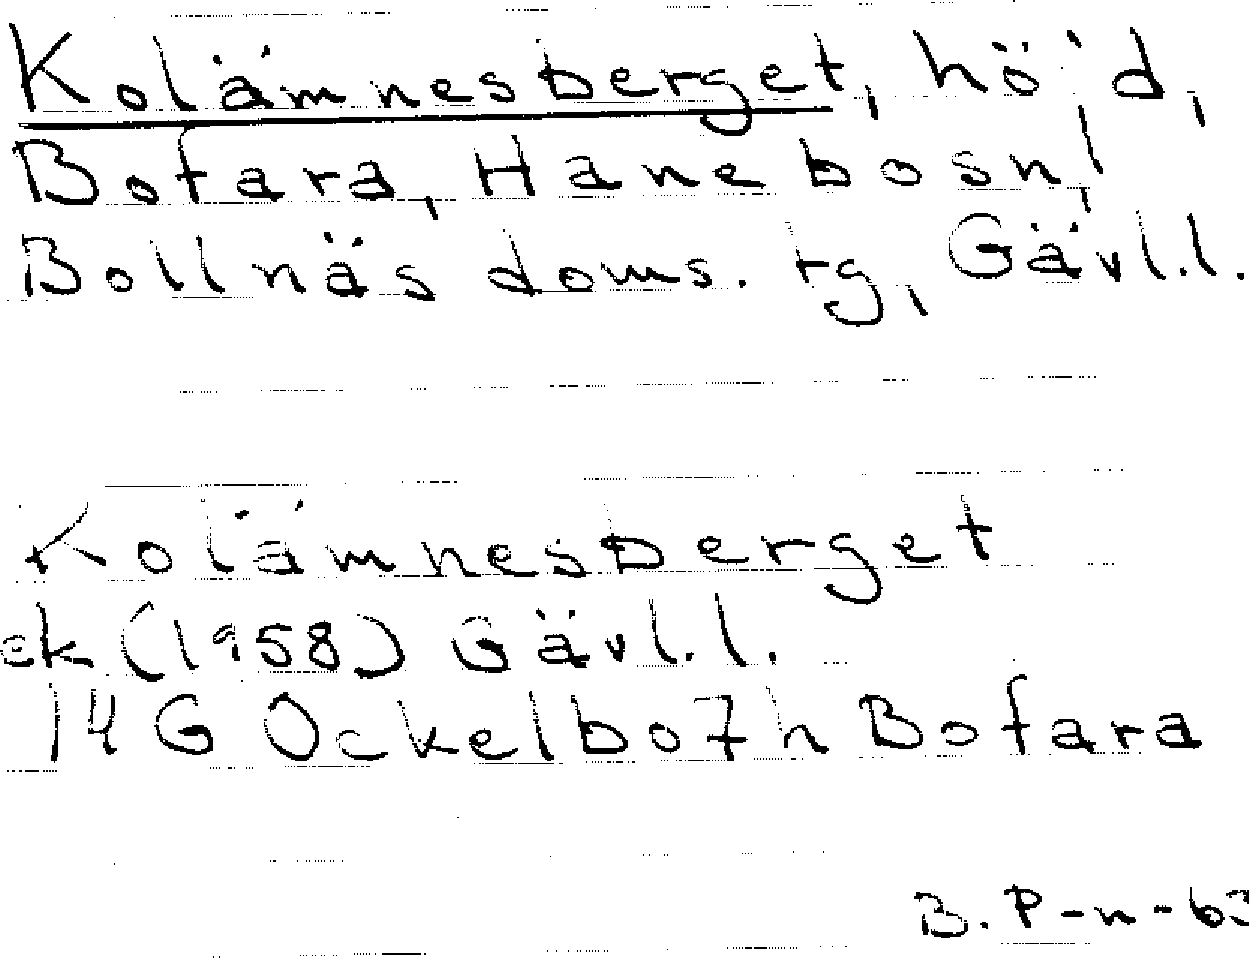 Kolämnesberget, höjd,
Bofara, Hanebo sn,
Bollnäs doms. tg, Gävl.l.
Kolämnesberget
ek (1958) Gävl.l.
14G Ockelbo 7h Bofara
B. P-n-63